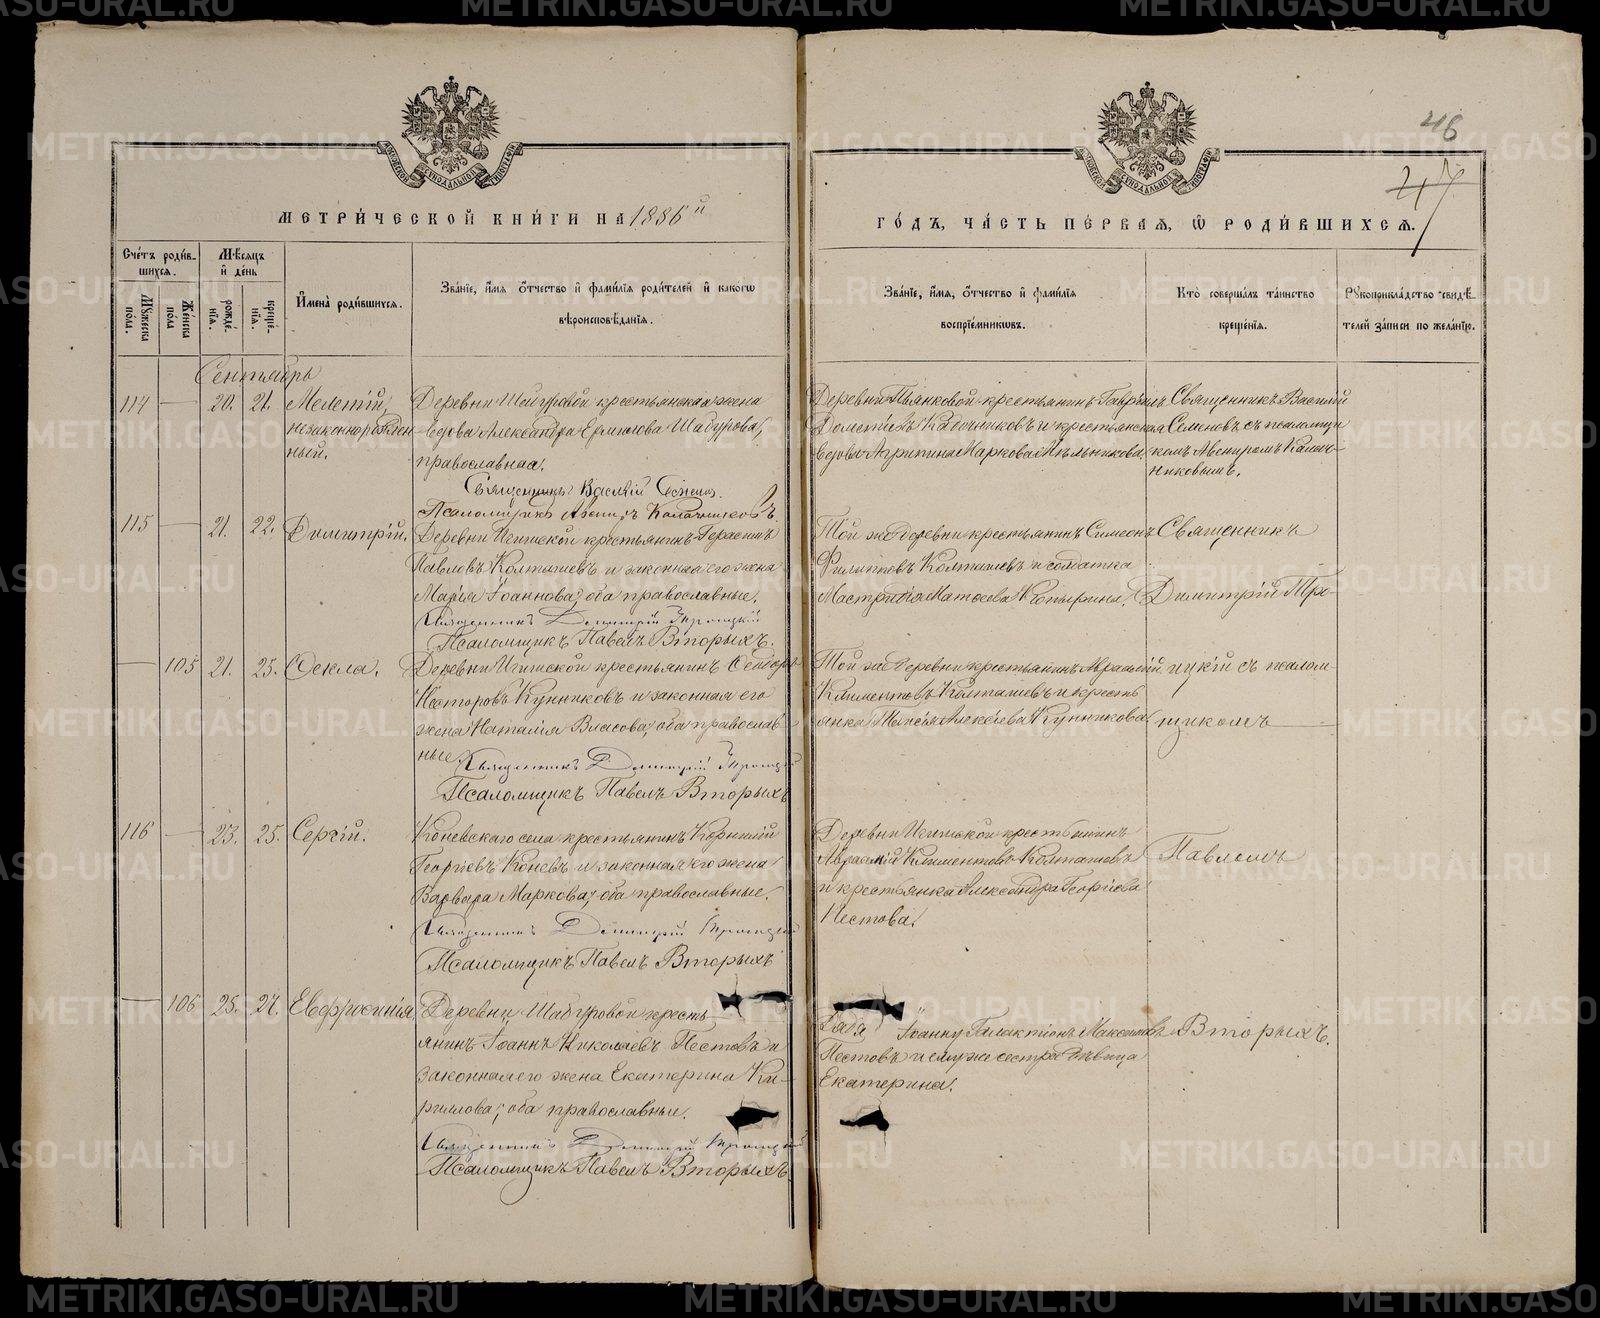 46
47
МЕТРИ́ЧЕСКОЙ КНИ́ГИ НА 1886й
ГО́ДЪ, ЧА́СТЬ ПЕ́РВАЯ, Ѡ РОДИ́ВШИХСЯ.
Сче́тъ роди́в-
шихся.
Мѣсяцъ
и день
Мꙋжеска пола.
Женска пола
рожде́нїя.
креще́нїя.
Имена̀ роди́вшихся.
Зва́нїе, и́мя о́тчество и фами́лїя роди́телей и како́гѡ
вѣроисповѣ́данїя.
Зва́нїе, и́мя, о́тчество и фами́лїя
воспрїе́мникѡвъ.
Кто̀ соверша́лъ та́инство
креще́нїя.
Рꙋкоприкла́дство свидѣ́-
телей за́писи по жела́нїю.
Сентябрь
114 — 20. 21. Мелетій,
незаконнорожден-
ный.
Деревни Шайдуровой крестьянская жена
вдова Александра Ермилова Шабурова,
православная.
Священникъ Василій Семенов.
Псаломщикъ Авениръ Калачниковъ.
Деревни Пьянковой крестьянинъ Гавріилъ
Дометіевъ Кадочниковъ и крестьянская
вдова Агрипина Маркова Мѣльникова
Священникъ Василій
Семеновъ съ псаломщи
комъ Авениромъ Калач-
никовымъ.
115 — 21. 22. Димитрій.
Деревни Исетской крестьянинъ Герасимъ
Павловъ Колташевъ и законная его жена
Марія Іоаннова, оба православные.
Священникъ Димитрій Троицкій
Псаломщикъ Павелъ Вторыхъ.
Той же деревни крестьянинъ Симеонъ
Филиповъ Колташевъ и солдатка
Матѳеева
Священникъ
Димитрій Тро-
— 105 21. 25. Ѳекла.
Деревни крестьянинъ Ѳеодоръ
Несторовъ Кунниковъ и законная его
жена Наталія Власова, оба православ-
ные.
Священникъ Димитрій Троицкій
Псаломщикъ Павелъ Вторыхъ
Той же деревни крестьянинъ Авраамій
Климентовъ Колташевъ и кресть
янка Таисія Алексѣева Кунникова
ицкій съ псалом-
щикомъ
116 — 23. 25. Сергій.
Коневскаго села крестьянинъ Корнилій
Георгіевъ Коневъ и законная его жена
Варвара Маркова, оба православные.
Священникъ Димитрій Троицкій
Псаломщикъ Павелъ Вторыхъ
Деревни крестьянинъ
Авраамій Климентовъ Колташевъ
и крестьянка Александра Георгіева
Пестова.
Павломъ
— 106 25. 27. Евфросинія
Деревни Шабуровой кресть-
янинъ Іоаннъ Николаевъ Пестовъ и
законная его жена Екатерина Ки-
рилова, оба православные.
Священникъ Димитрій Троицкій
Псаломщикъ Павелъ Вторыхъ.
Дядя Іоанну Галактіонъ Максимовъ
Пестовъ и ему же сестра дѣвица
Екатерина.
Вторыхъ.
METRIKI.GASO-URAL.RU